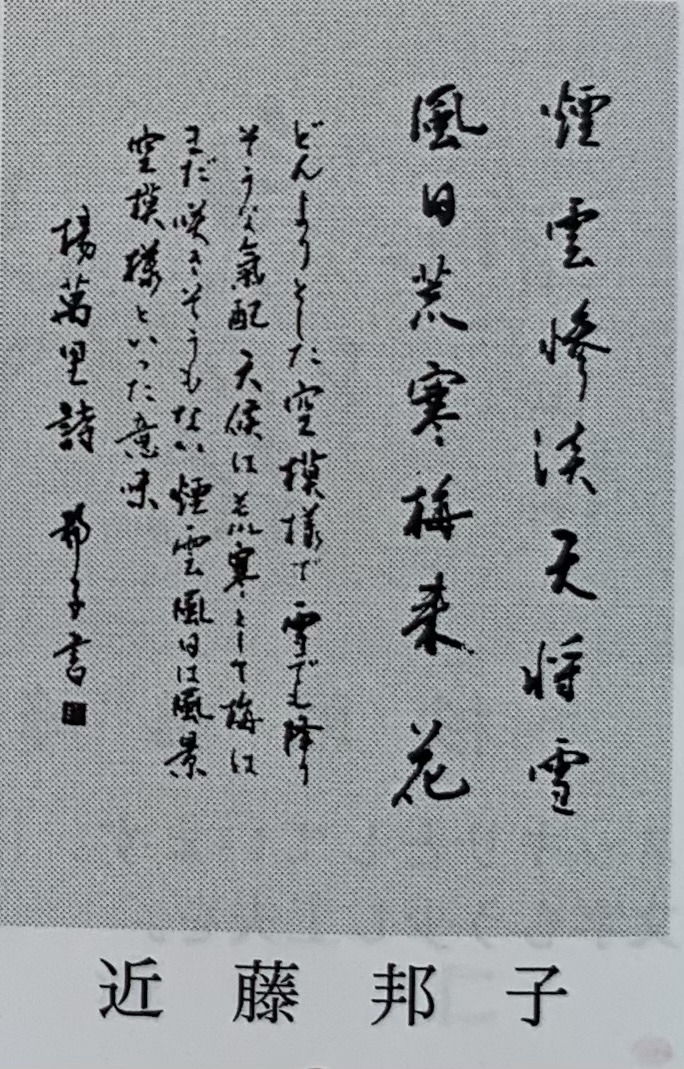 煙雲惨淡天将雪
風日荒寒梅未花
どんよりとした空模様で雪でも降り
そうな氣配 天候は荒寒として梅は
まだ咲きそうもない煙雲風日は風景
空模様といった意味
楊萬里詩 邦子書
近藤邦子